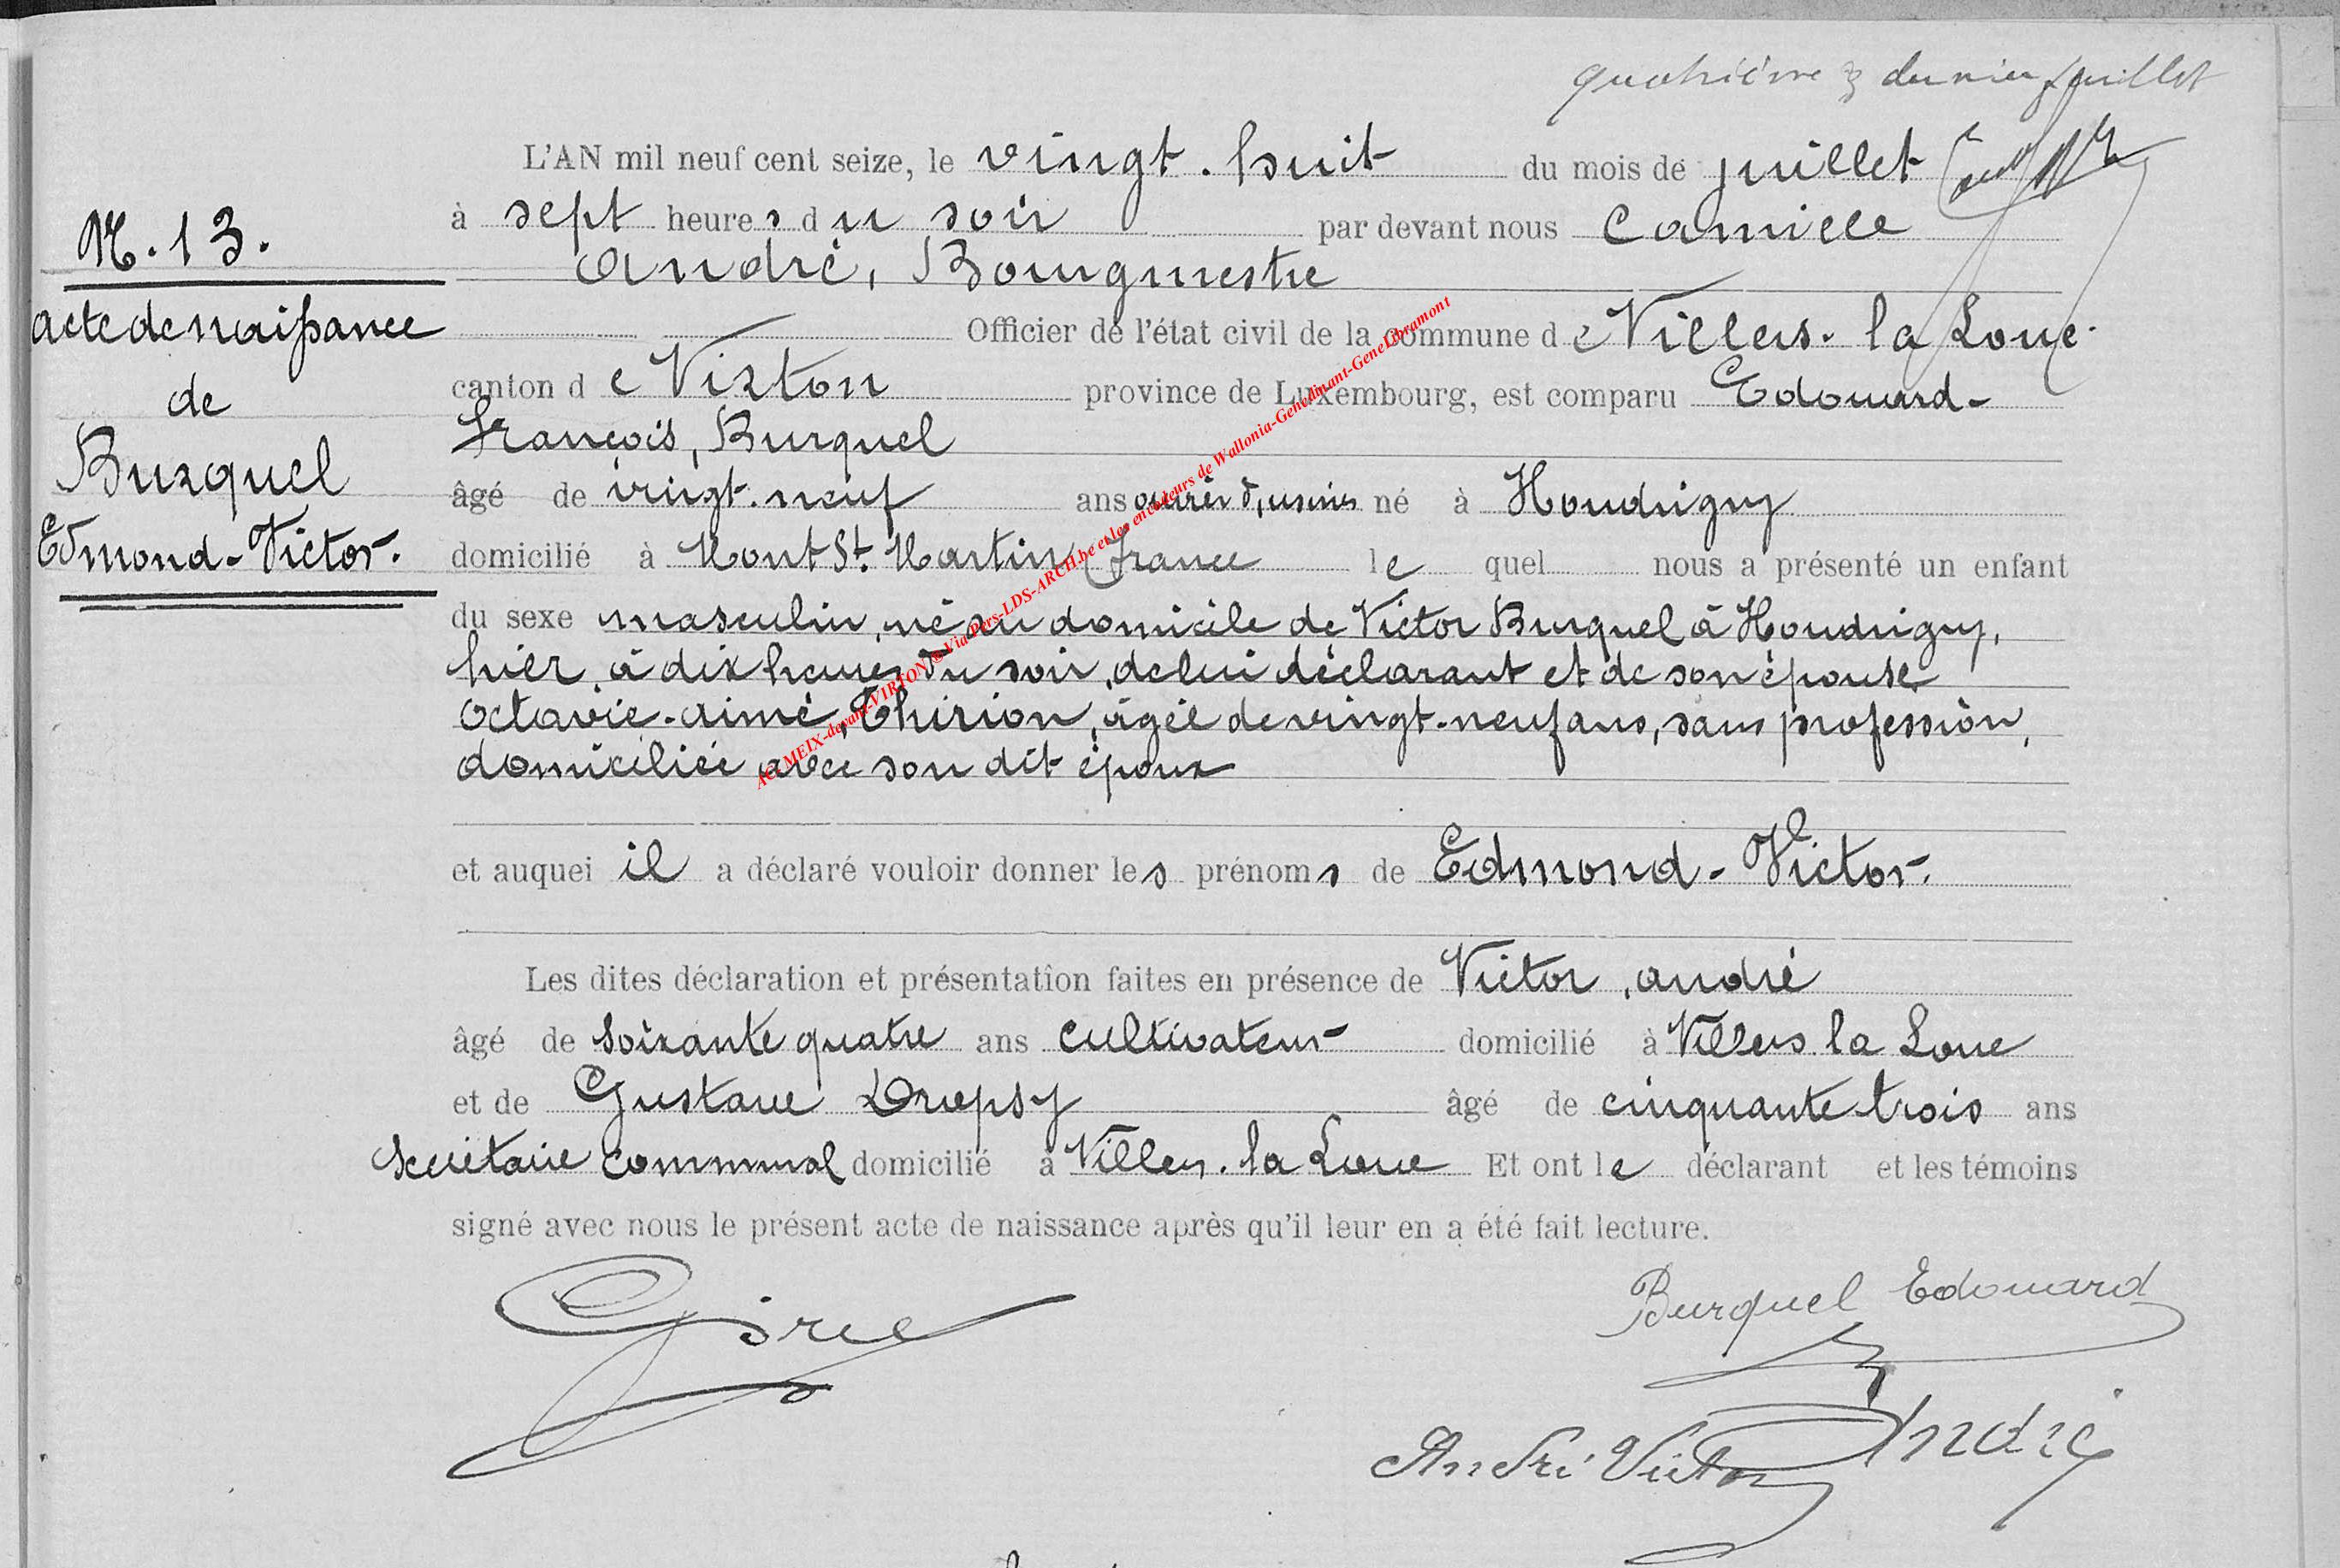 quatrième & dernier feuillet
L'AN mil neuf cent seize, le vingt-huit du mois de juillet
à sept heures du soir par devant nous Camille
André, Bourgmestre
Officier de l'état civil de la commune de Villers-la Loue
canton de Virton province de Luxembourg, est comparu Edouard-
François, Burquel
âgé de vingt-neuf ans ouvrier d'usines né à Houdrigny
domicilié à Mont St. Martin (France le quel nous a présenté un enfant
du sexe masculin, né au domicile de Victor Burquel à Houdrigny,
hier, à dix heures du soir, de lui déclarant et de son épouse
Octavie-Aimé, Thirion, âgée de vingt-neuf ans, sans profession,
domiciliée avec son dit époux
et auquel il a déclaré vouloir donner les prénoms de Edmond-Victor.
Les dites déclaration et présentation faites en présence de Victor, André
âgé de soixante quatre ans cultivateur domicilié à Villers la Loue
et de Gustave Dropsy âgé de cinquante trois ans
secrétaire communal domicilié à Villers-la Loue Et ont le déclarant et les témoins
signé avec nous le présent acte de naissance après qu'il leur en a été fait lecture.
N. 13.
acte de naissance
de
Burquel
Edmond-Victor.
AC: MEIX-devant-VIRTON © Via Pers-LDS-ARCH.be et les encodeurs de Wallonia-Genedinant-GeneLibramont
Burquel Edouard
André Victor
André